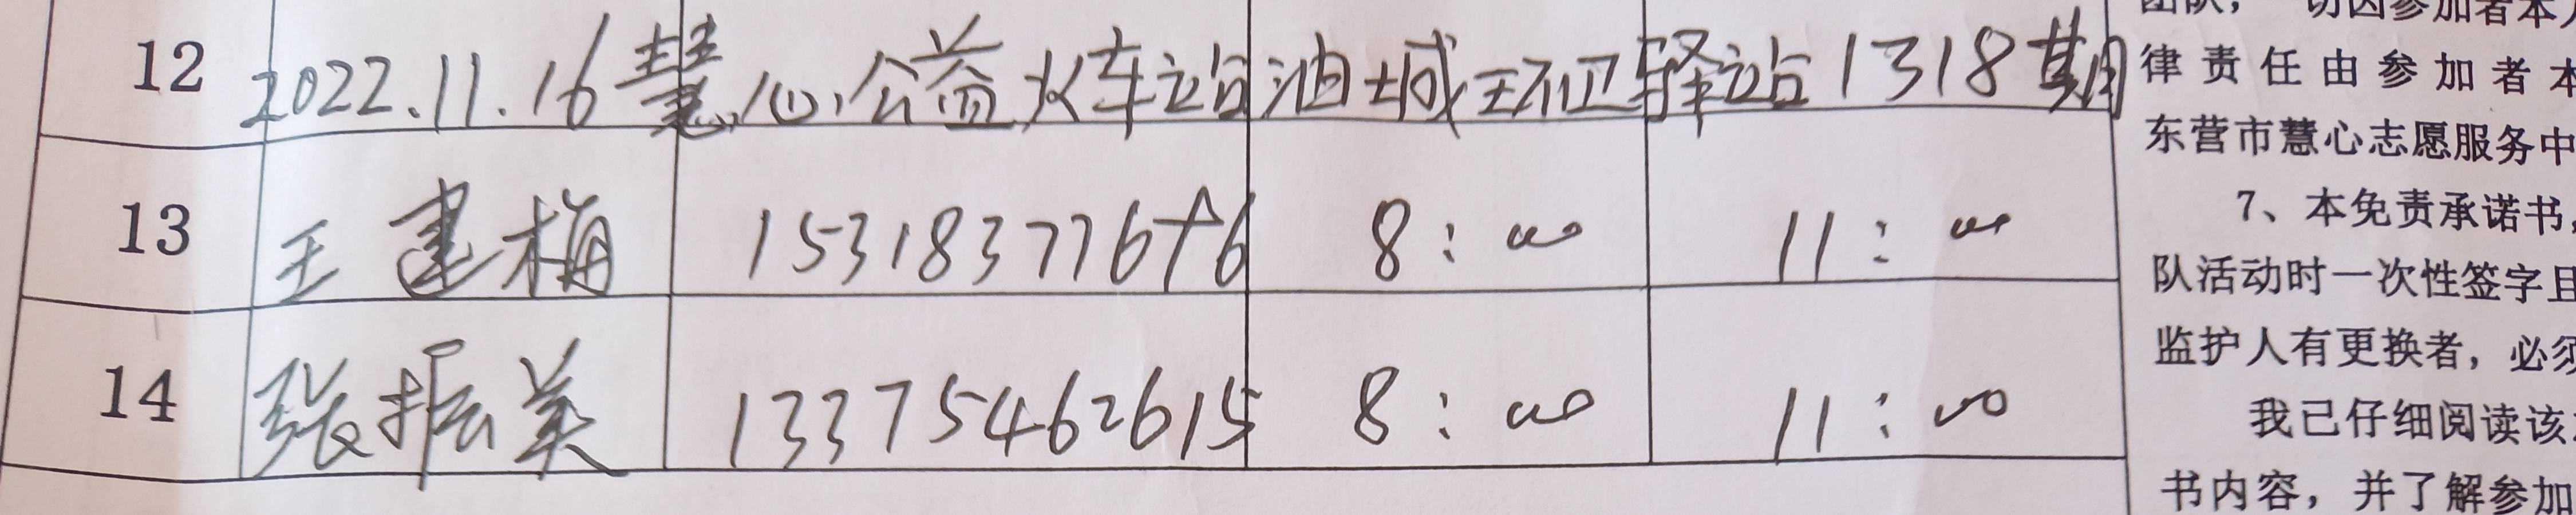 团队，一切因参加者本
12 2022.11.16慧心公益火车站油城环卫驿站1318期
律责任由参加者本
东营市慧心志愿服务中
13 王建梅 8:00 11:00
7、本免责承诺书，
队活动时一次性签字且
监护人有更换者，必须
14 张振美 13375462615 8:00 11:00
我已仔细阅读该
书内容，并了解参加